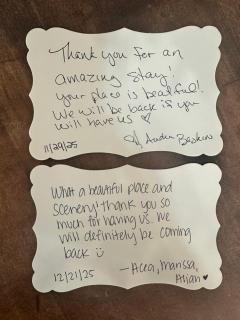 Thank you for an
amazing stay!
your place is beatiful!
We will be back if you
will have us ♡
11/29/25
What a beautiful place and
scenery! thank you so
much for having us. we
will definitely be coming
back ☺
12/21/25
—Acea, Marissa,
♥